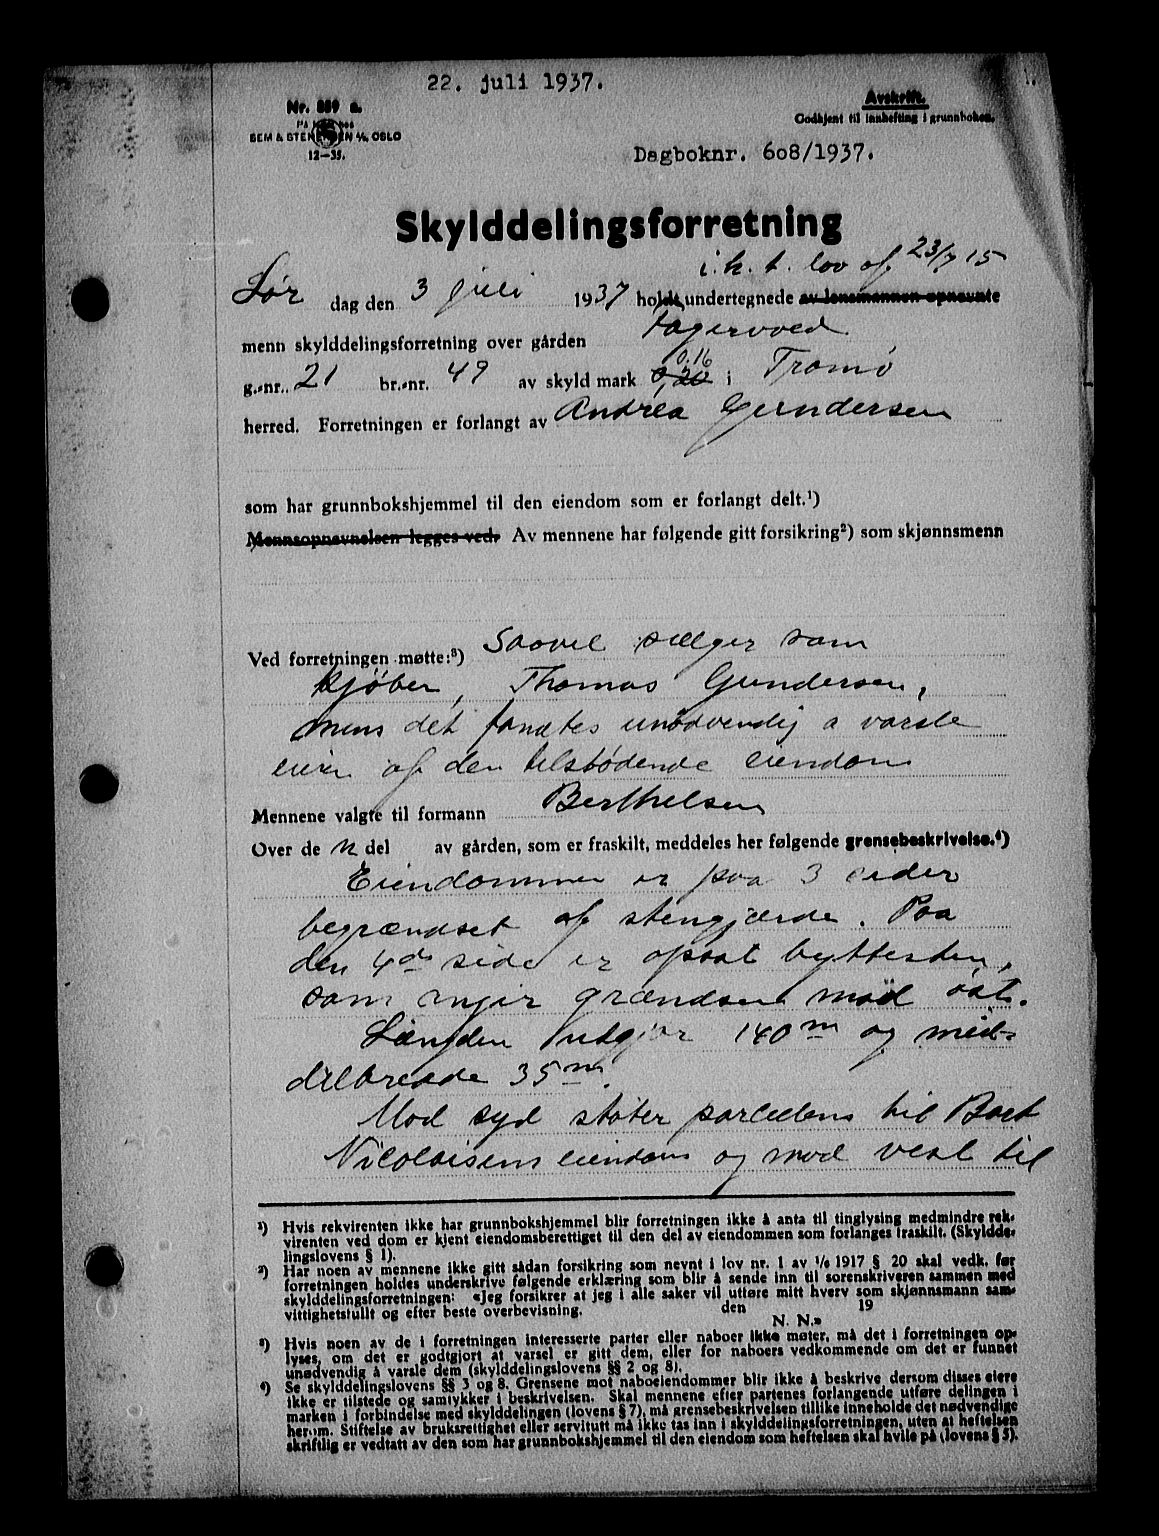 22. juli 1937.
Nr. 889 a.
Avskrift.
Godkjent til innhefting i grunnboken.
SEM & STENERSEN A/S, OSLO
12—35.
Dagboknr. 608/1937.
Skylddelingsforretning
i.h.t. lov af 23/7 15
Lør dag den 3 juli 1937 holdt undertegnede av lensmannen opnevnte
menn skylddelingsforretning over gården Fagervoed
0.16
g.-nr. 21 br.-nr. 49 av skyld mark 0,20 i Tromø
herred. Forretningen er forlangt av Andrea Gundersen
som har grunnbokshjemmel til den eiendom som er forlangt delt.¹)
Mennsopnevnelsen legges ved. Av mennene har følgende gitt forsikring²) som skjønnsmenn
Ved forretningen møtte:³) Saavel sælger som
kjøber, Thomas Gundersen,
mens det fandtes unødvendig a varsle
eier af den tilstødende eiendom
Mennene valgte til formann Berthelsen
Over de n del av gården, som er fraskilt, meddeles her følgende grensebeskrivelse.⁴)
Eiendommen er paa 3 sider
begrændset af stengjærde. Paa
den 4de side er opsat byttesten,
som angir grændsen mod øst.
Længden utgjør 140 m og mid-
delbredde 35 m.
Mod syd støter parcelens til
Nicolaisens eiendom og mod vest til
¹) Hvis rekvirenten ikke har grunnbokshjemmel blir forretningen ikke å anta til tinglysing medmindre rek-
virenten ved dom er kjent eiendomsberettiget til den del av eiendommen som forlanges fraskilt. (Skyldde-
lingslovens § 1).
²) Har noen av mennene ikke gitt sådan forsikring som nevnt i lov nr. 1 av 1/6 1917 § 20 skal vedk. før
forretningen holdes underskrive følgende erklæring som blir å sende inn til sorenskriveren sammen med
skylddelingsforretningen: «Jeg forsikrer at jeg i alle saker vil utføre mitt hverv som skjønnsmann sam-
vittighetsfullt og efter beste overbevisning. den 19
N. N.»
³) Hvis noen av de i forretningen interesserte parter eller naboer ikke møter, må det i forretningen op-
lyses, om det er godtgjort at varsel er gitt dem, eller for naboers vedkommende om det er funnet
unødvendig å varsle dem (skylddelingslovens §§ 2 og 8).
⁴) Se skylddelingslovens §§ 3 og 8. Grensene mot naboeiendommer blir ikke å beskrive dersom disses eiere
ikke er tilstede og samtykker i beskrivelsen. Skal mennene efter partenes forlangende utføre delingen i
marken i forbindelse med skylddelingen (lovens § 7), må grensebeskrivelsen tillike inneholde det nødvendige
herom. Stiftelse av bruksrettighet eller servitutt må ikke tas inn i skylddelingsforretningen, uten at heftelsen
skriftlig er vedtatt av den som har grunnbokshjemmel til den eiendom som heftelsen skal hvile på (lovens § 5).